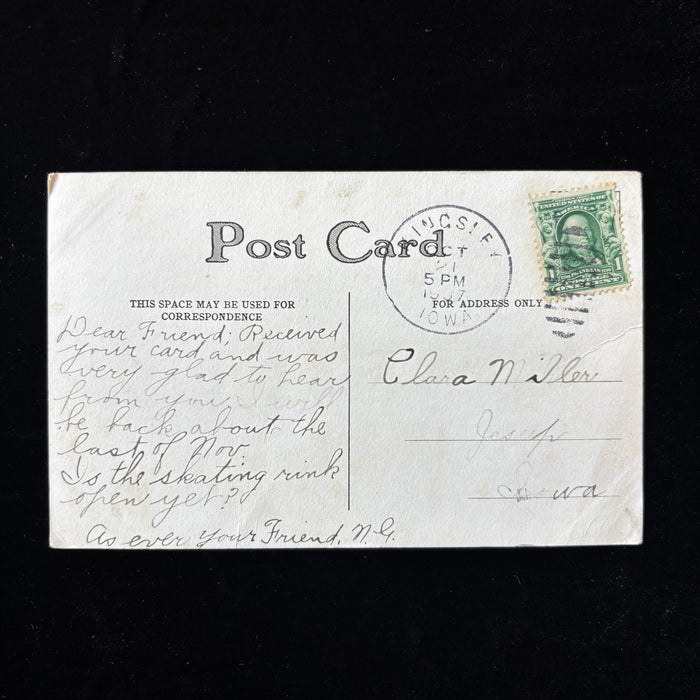 Post Card
KINGSLEY
OCT
21
5 PM
1907
IOWA
UNITED STATES OF
AMERICA
1
THIS SPACE MAY BE USED FOR
CORRESPONDENCE
FOR ADDRESS ONLY
Dear Friend; Received
your card and was
very glad to hear
from you I will
be back about the
last of Nov.
Is the skating rink
open yet?
As ever your Friend, N.G.
Clara Miller
Jesup
Iowa